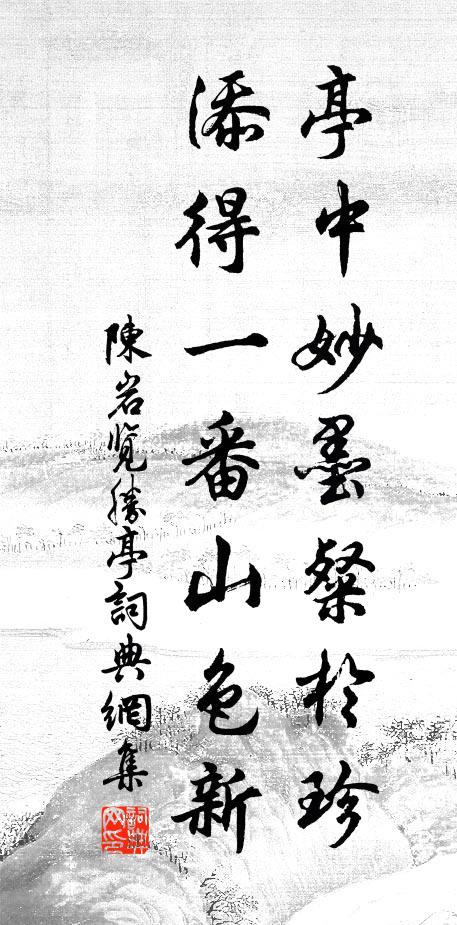 亭中妙墨粲於珍
添得一番山色新
陳岩覽勝亭詞典網集